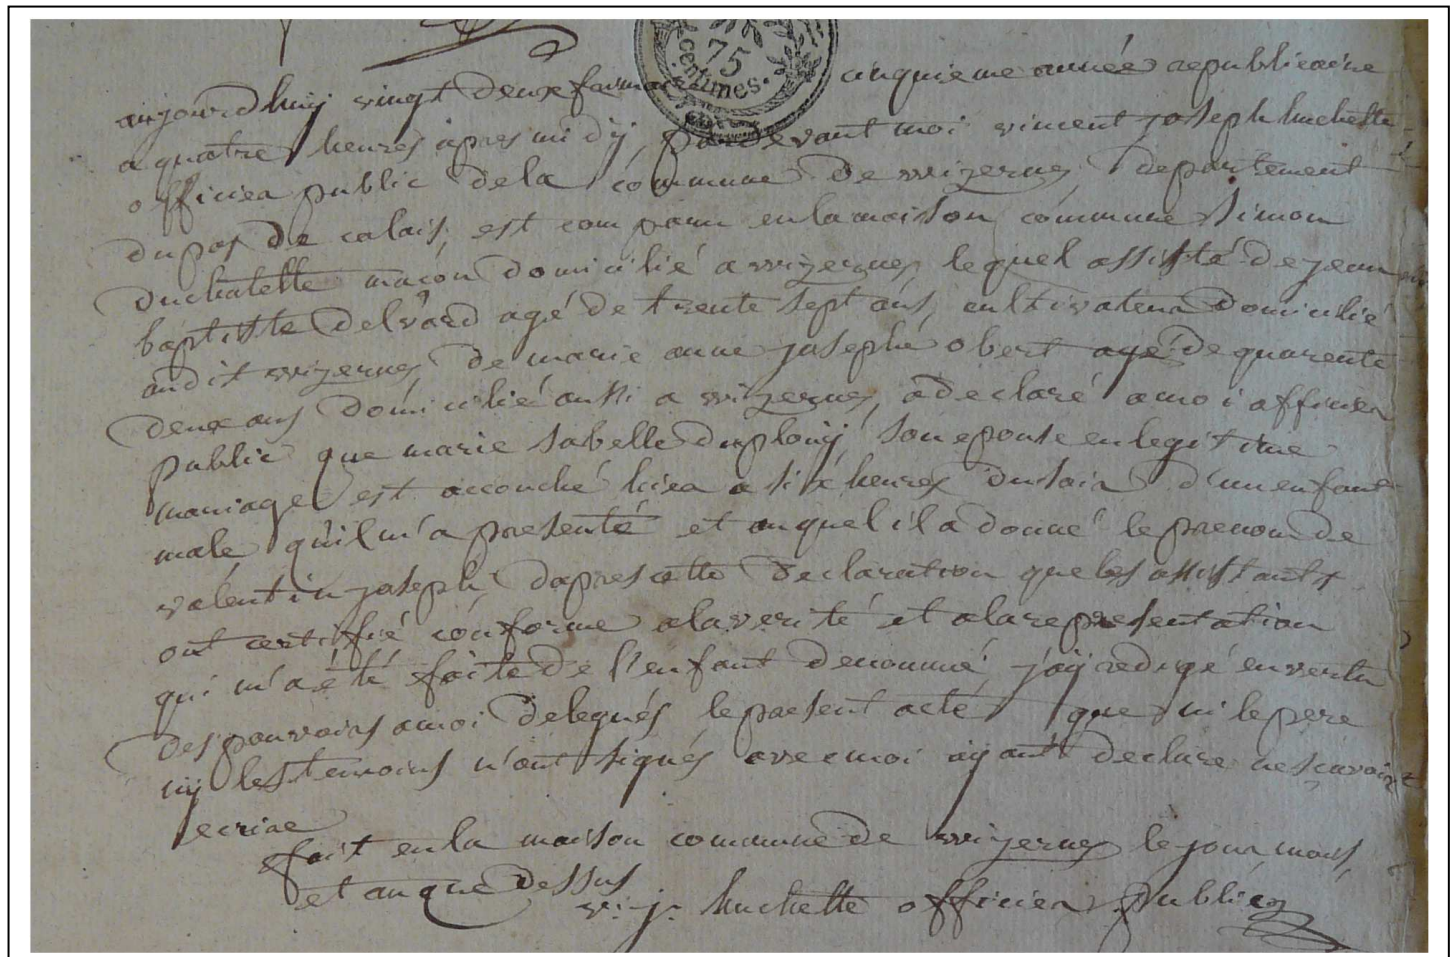 75
centimes.
aujourdhuy vingt deux cinquieme année republicaine
a quatre heures apres midy, pardevant moi vincent joseph huchette
officier public dela commune de wizernes, departement
du pas de calais, est comparu en la maison commune simon
duchatelle maçon domicilié a wizernes, lequel assisté de jean
baptiste delvard agé de trente sept ans, cultivateur domicilié
au dit wizernes de marie anne josephe obert agé de quarente
deux ans domicilié aussi a wizernes, a declaré a moi officier
public que marie isabelle duplouy, son epouse en legitime
mariage est accouché hier a six heures du soir d'un enfant
male, qu'il m'a presenté et auquel il a donné le prenom de
valentin joseph, dapres cette declaration que les assistants
ont certifié conforme a la verité et a la representation
qui m'a été faite de l'enfant denommé, j'ay redigé en vertu
des pouvoirs a moi delegués le present acte, que ni le pere
ny les temoins n'ont signés avec moi ayant declare ne sçavoir
ecrire
fait en la maison commune de wizernes le jour, mois,
et an que dessus
v. j. huchette officier public